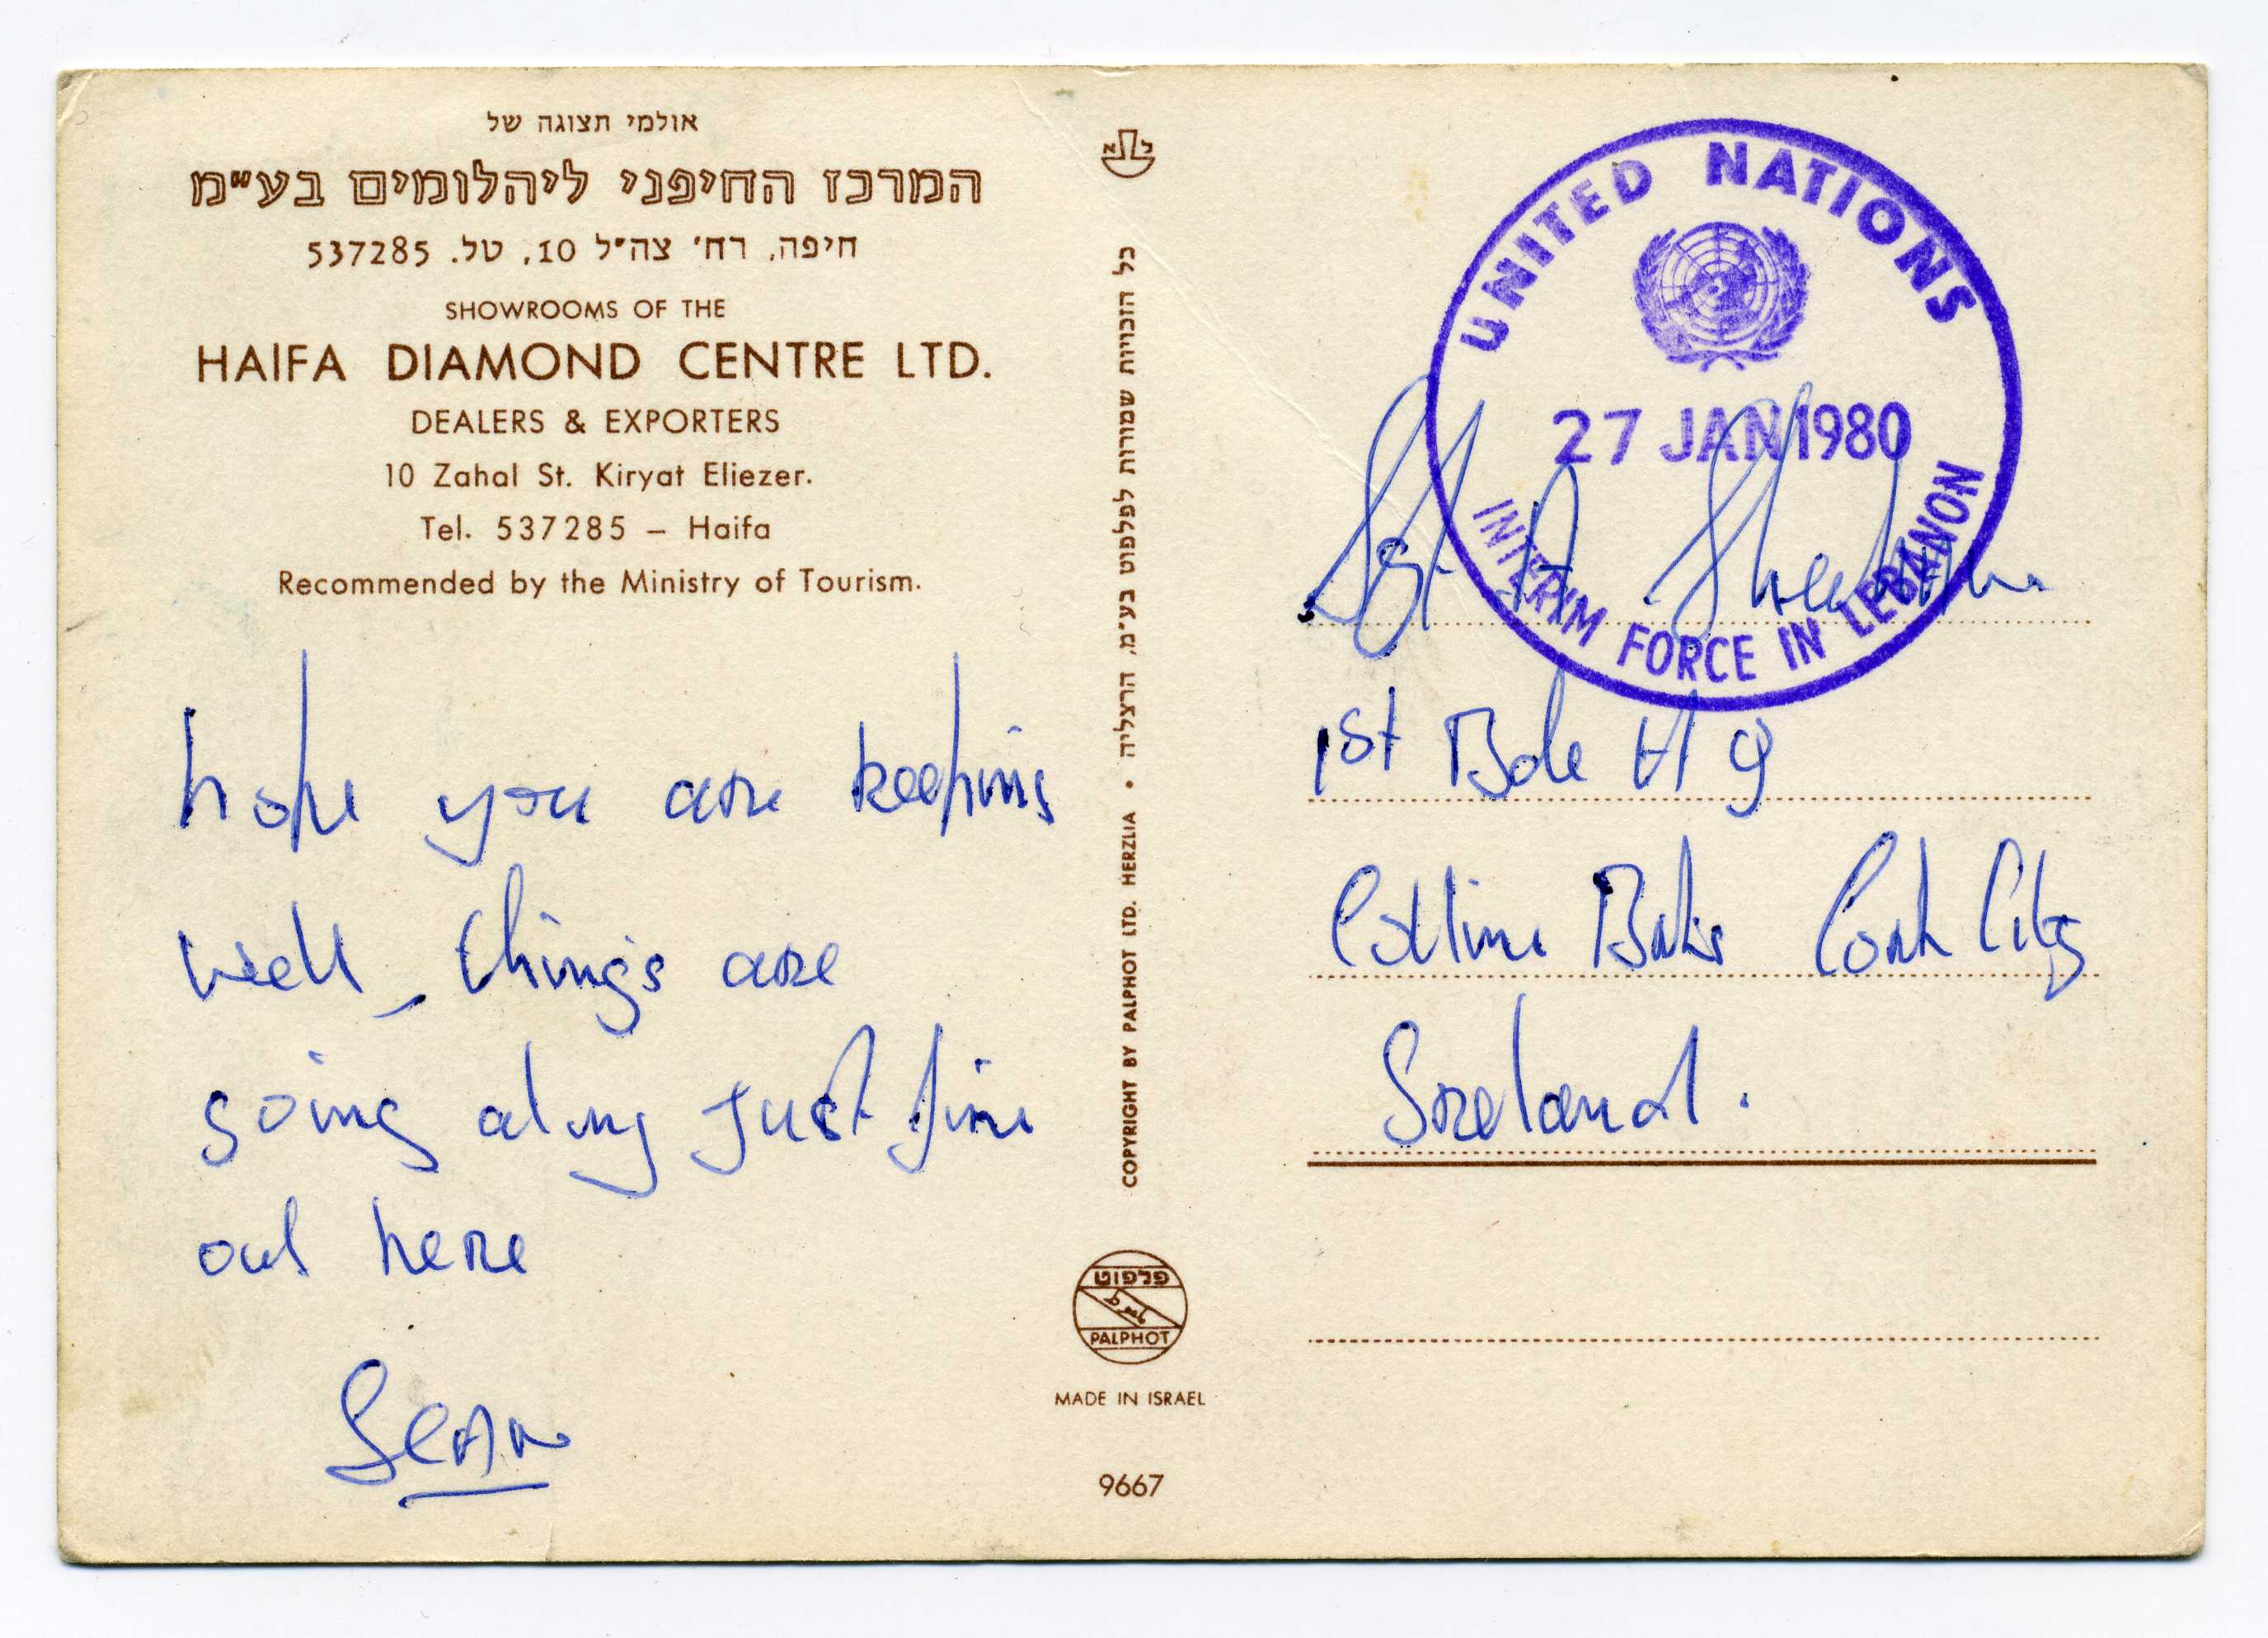 אולמי תצוגה של
המרכז החיפני ליהלומים בע"מ
חיפה, רח' צה"ל 10, טל. 537285
SHOWROOMS OF THE
HAIFA DIAMOND CENTRE LTD.
DEALERS & EXPORTERS
10 Zahal St. Kiryat Eliezer.
Tel. 537285 – Haifa
Recommended by the Ministry of Tourism.
hope you are keeping
well, things are
going along just fine
out here
SEAN
כל הזכויות שמורות לפלפוט בע"מ, הרצליה • COPYRIGHT BY PALPHOT LTD. HERZLIA
פלפוט
PALPHOT
MADE IN ISRAEL
9667
UNITED NATIONS
27 JAN 1980
INTERIM FORCE IN LEBANON
Sgt A
1st Bde HQ
Collins Bks Cork City
Ireland.